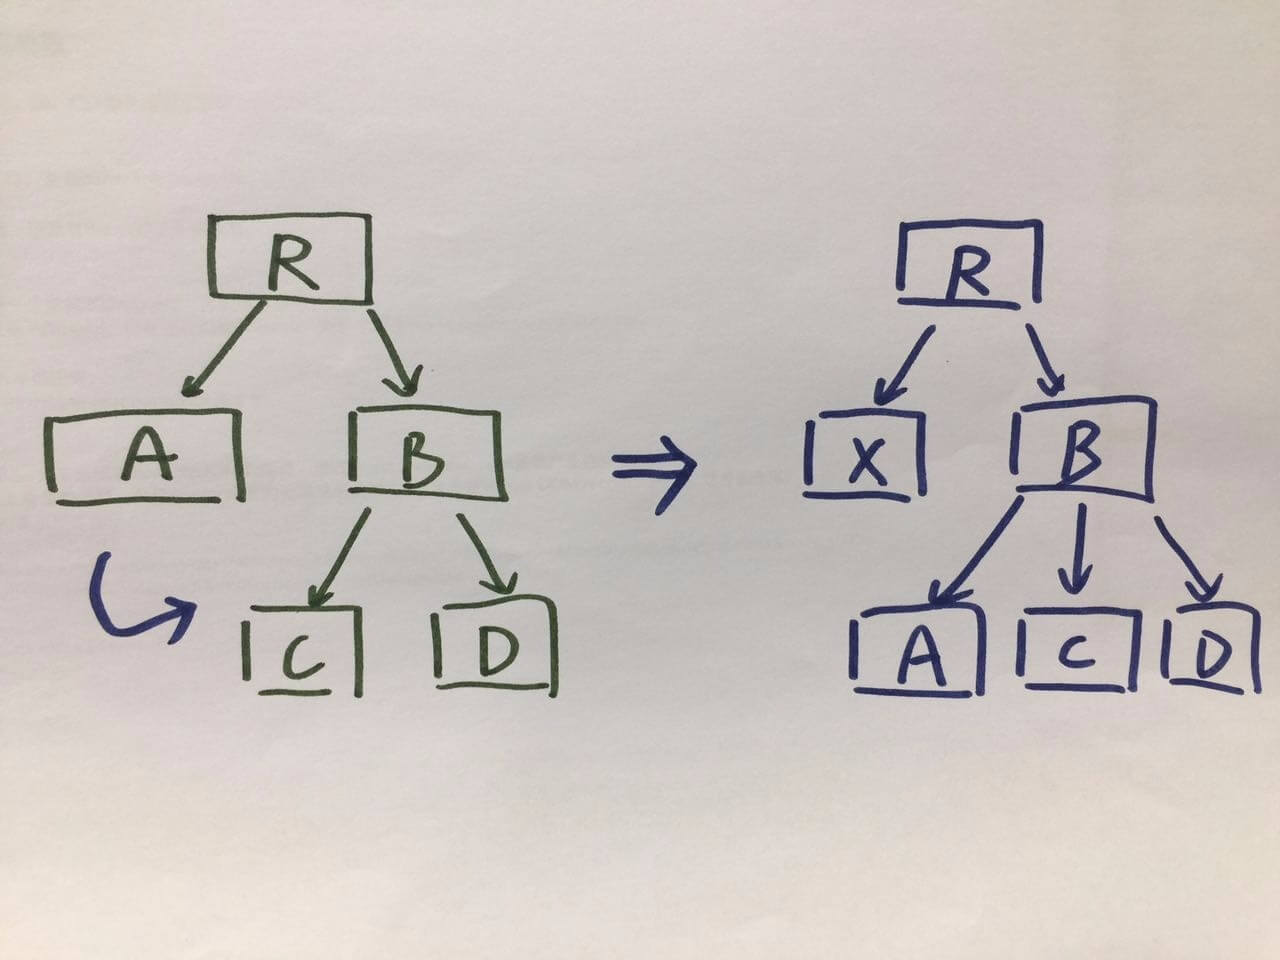 R
A
B
C
D
R
X
B
A
C
D